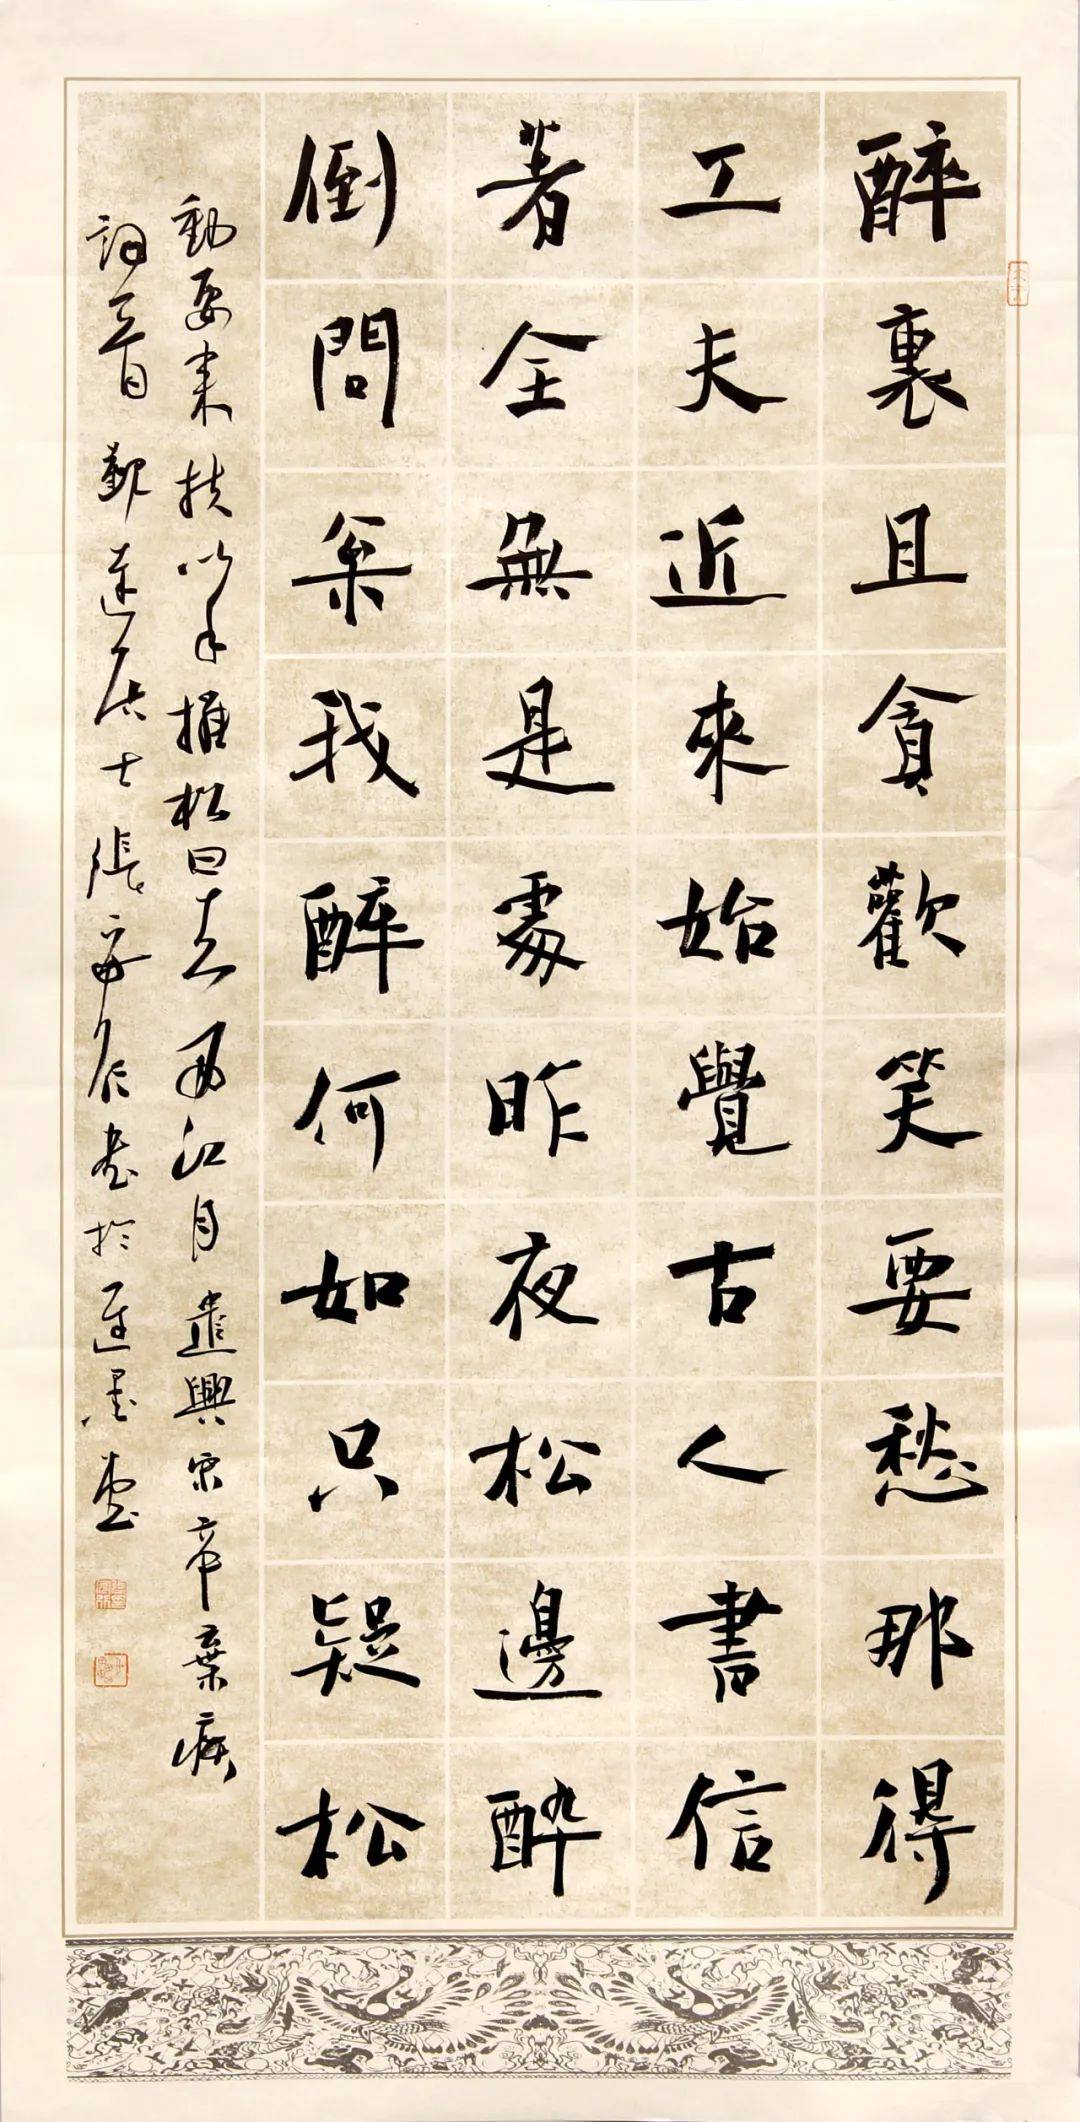 醉裏且貪歡笑要愁那得
工夫近來始覺古人書信
著全無是處昨夜松邊醉
倒問松我醉何如只疑松
動要來扶以手推松曰去 西江月 遣興 宋 辛棄疾
詞一首 觀蓮居士張 書於 墨堂